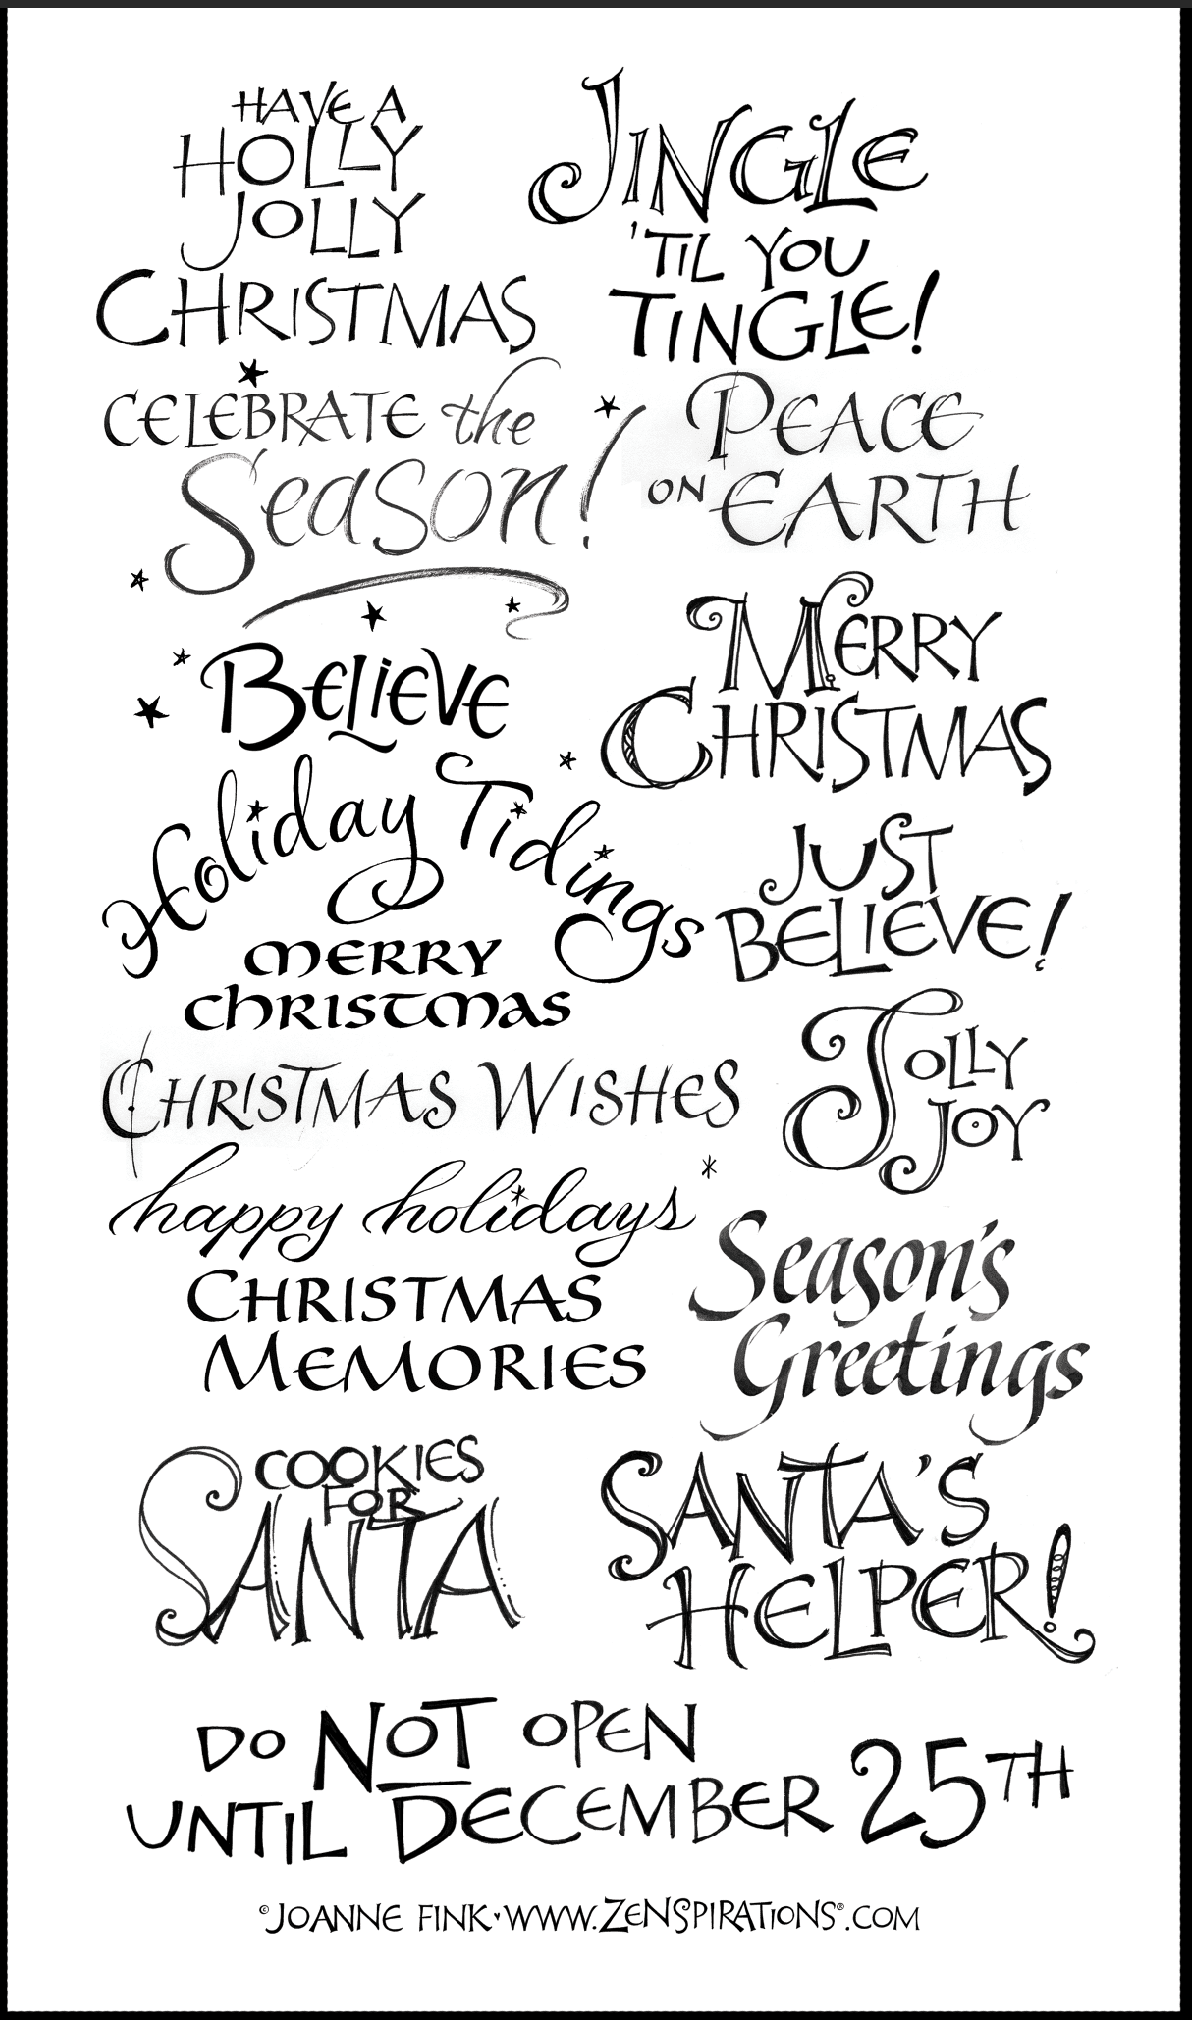 HAVE A
HOLLY
JOLLY
CHRISTMAS
JINGLE
'TIL YOU
TINGLE!
CELEBRATE the
Season!
PEACE
ON EARTH
BELIEVE
MERRY
CHRISTMAS
Holiday Tidings
JUST
BELIEVE!
merry
christmas
JOLLY
JOY
CHRISTMAS WISHES
happy holidays
Season's
Greetings
CHRISTMAS
MEMORIES
COOKIES
FOR
SANTA
SANTA'S
HELPER!
DO NOT OPEN
UNTIL DECEMBER 25TH
©JOANNE FINK♥WWW.ZENSPIRATIONS®.COM